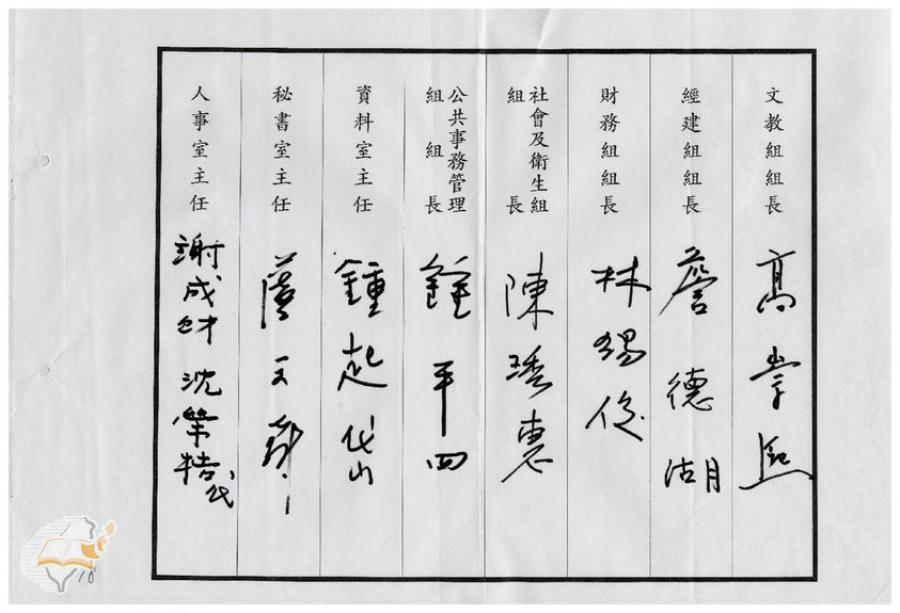 文教組組長
高崇熙
經建組組長
詹德湖
財務組組長
林錫俊
社會及衛生組
組長
陳琇惠
公共事務管理
組組長
鍾平四
資料室主任
鍾起岱
秘書室主任
人事室主任
謝成財
沈榮
代
18